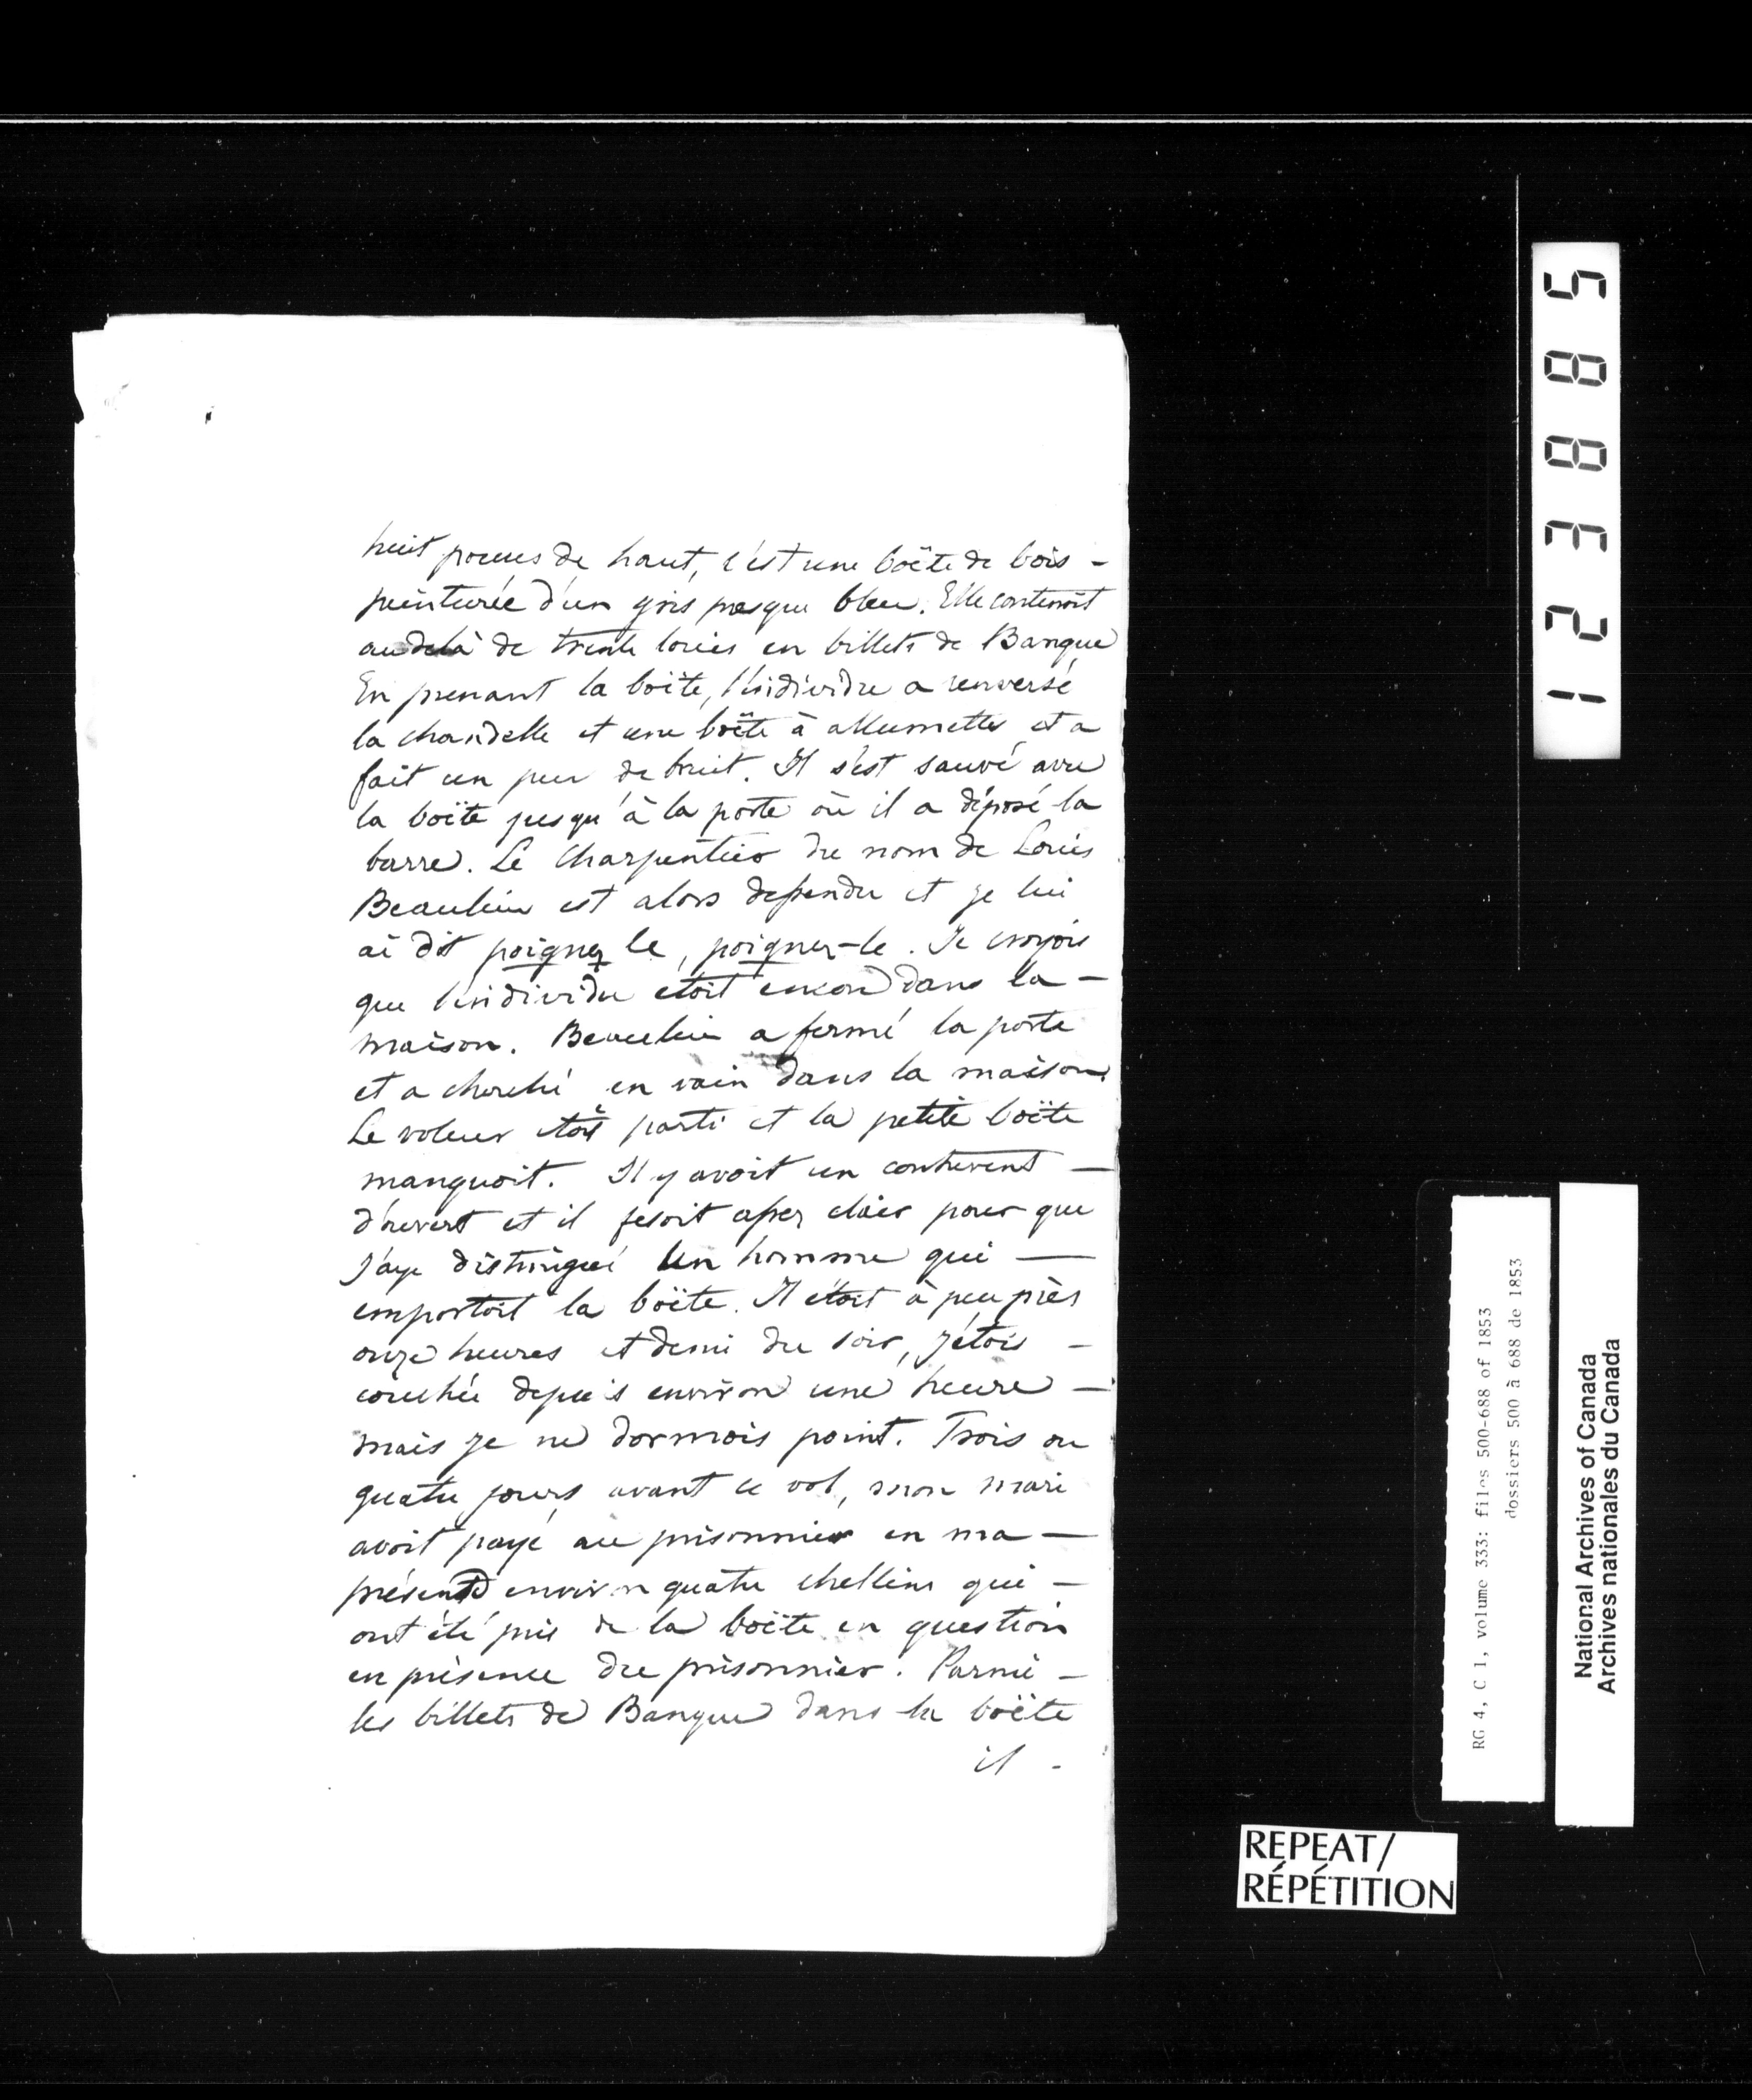 huit pouces de haut, c'est une boëte de bois -
peinturée d'un gris presque bleu. Elle contenoit
audelà de trente louis en billets de Banque
En prenant la boëte, l'individu a renversé
la chandelle et une boëte à allumettes et a
fait un peu de bruit. Il s'est sauvé avec
la boëte jusqu'à la porte où il a déposé la
barre. Le Charpentier du nom de Louis
Beaulieu est alors descendu et je lui
ai dit poignez le, poignez-le. Je croyois
que l'individu etoit encore dans la -
maison. Beaulieu a fermé la porte
et a cherché en vain dans la maison.
Le voleur etoit parti et la petite boëte
manquoit. Il y avoit un contrevent -
d'ouvert et il fesoit assez clair pour que
j'aye distingué Un homme qui -
emportoit la boëte. Il etoit à peu près
onze heures et demi du soir, j'étois -
couchée depuis environ une heure -
mais je ne dormois point. Trois ou
quatre jours avant ce vol, mon mari
avoit payé au prisonnier en ma -
présence environ quatre chellins qui -
ont été pris de la boëte en question
en présence du prisonnier. Parmi -
les billets de Banque dans la boëte
il -
1 2 3 8 8 5
RG 4, C 1, volume 333: files 500-688 of 1853
dossiers 500 à 688 de 1853
National Archives of Canada
Archives nationales du Canada
REPEAT/
RÉPÉTITION